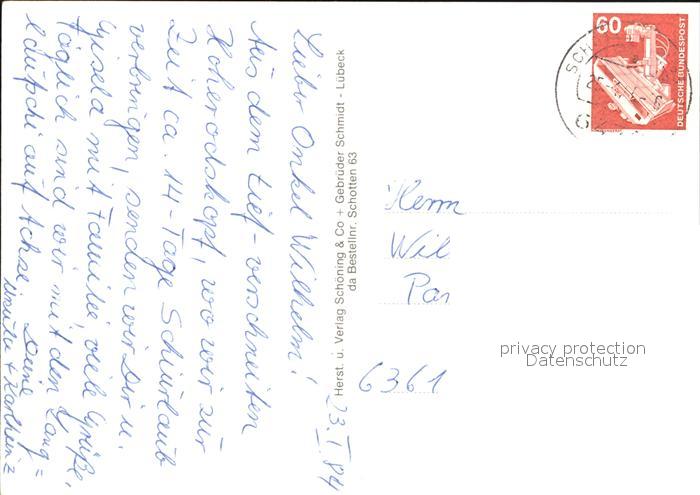 Lieber Onkel Wilhelm!
Aus dem tief-verschneiten
Hoherodskopf, wo wir zur
Zeit ca. 14-Tage Schiurlaub
verbringen, senden wir Dir u.
Gisela mit Familie, viele Grüße,
täglich sind wir mit den Lang=
laufschi auf Achse. Deine
+ Karlheinz
23. I. 84
Herst. u. Verlag Schöning & Co + Gebrüder Schmidt - Lübeck
da Bestellnr. Schotten 63
60
DEUTSCHE BUNDESPOST
SCH
Herrn
Wil
Par
6361
privacy protection
Datenschutz